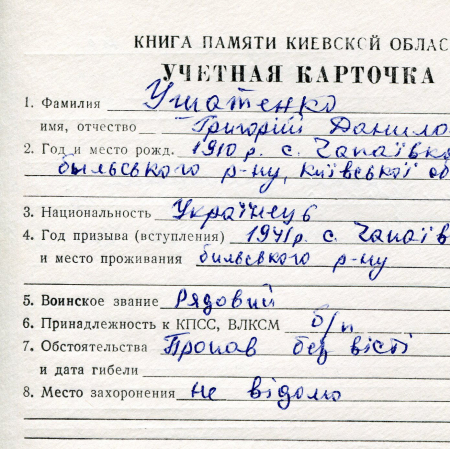 КНИГА ПАМЯТИ КИЕВСКОЙ ОБЛАС
УЧЕТНАЯ КАРТОЧКА
1. Фамилия Ушатенко
имя, отчество Григорій Данило
2. Год и место рожд. 1910 р. с. Чапаївка
бильського р-ну, Київської об
3. Национальность Українець
4. Год призыва (вступления) 1941 р. с. Чапаїв
и место проживания бильського р-ну
5. Воинское звание Рядовий
6. Принадлежность к КПСС, ВЛКСМ б/п
7. Обстоятельства Пропав без вісті
и дата гибели
8. Место захоронения не відомо